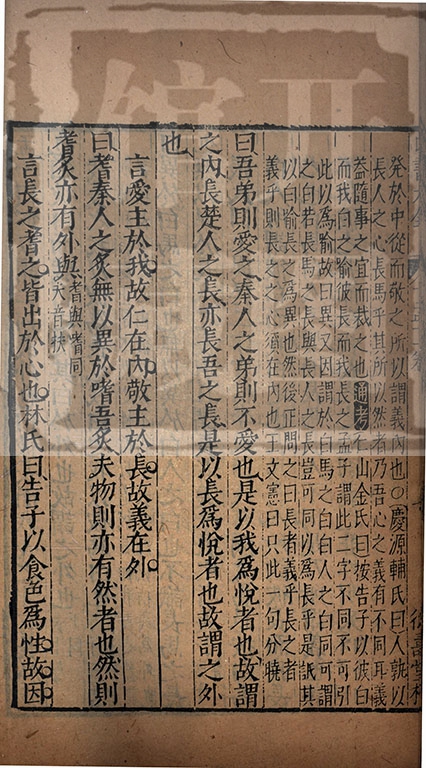 發於中從而敬之所以謂義內也○慶源輔氏曰人就以
長人之心長馬乎其所以然者乃吾心之義有不同耳義
蓋隨事之宜而裁之也 通考 仁山金氏曰按告子以彼白
而我白之喻彼長而我長之孟子謂此二字不同不可引
此以為喻故曰異又因謂於白馬之白白人之白同可謂
之白若長馬之長與長人之長豈可同以為長乎是詆其
以白喻長之為異也然後正問之曰長者義乎長之者
義乎則長之之心須在內也王文憲曰只此一句分曉
曰吾弟則愛之秦人之弟則不愛也是以我爲悅者也故謂
之內長楚人之長亦長吾之長是以長爲悅者也故謂之外
也
言愛主於我故仁在內敬主於長故義在外
曰耆秦人之炙無以異於嗜吾炙夫物則亦有然者也然則
耆炙亦有外與 耆與嗜同
夫音扶
言長之耆之皆出於心也林氏曰告子以食色爲性故因